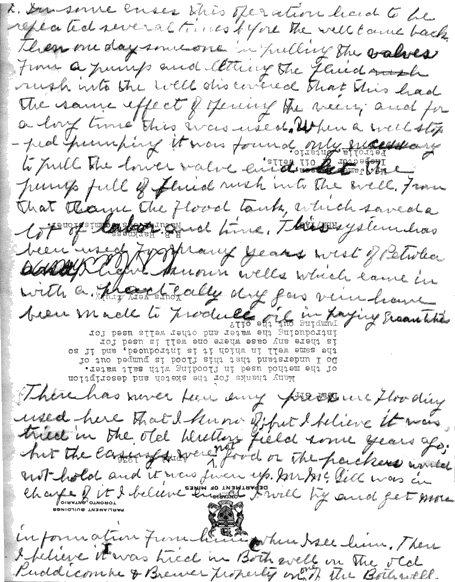 2. In some cases this operation had to be
repeated several times before the well came back.
Then one day someone in pulling the valves
from a pump and letting the fluid rush
rush into the well discovered that this had
the same effect of opening the vein, and for
a long time this was used. When a well stop
-ped pumping it was found only necessary
to pull the lower valve and let the
pump full of fluid rush into the well. From
that came the flood tank, which saved a
lot of labor and time. This system has
been used for many years west of Petrolia
I have known wells which came in
with a practically dry gas vein have
been made to produce oil in paying quantities
There has never been any pressure flooding
used here that I know of, but I believe it was
tried in the old field some years ago,
but the casings were not good or the packers would
not hold and it was given up. Mr. McGill was in
charge of it I believe and I will try and get more
information from him when I see him. Then
I believe it was tried in Bothwell on the old
Puddicombe & Brewer property on the Bothwell.
Petrolia, Ontario.
Inspector Oil Wells
Yours very truly
Many thanks for the sketch and description
of the method used in flooding with salt water.
Do I understand that this flood is pumped out of
the same well in which it is introduced, and if so
is there any case where one well is used for
introducing the water and other wells used for
pumping out the oil?
DEPARTMENT OF MINES
ONTARIO
PARLIAMENT BUILDINGS
TORONTO, ONTARIO